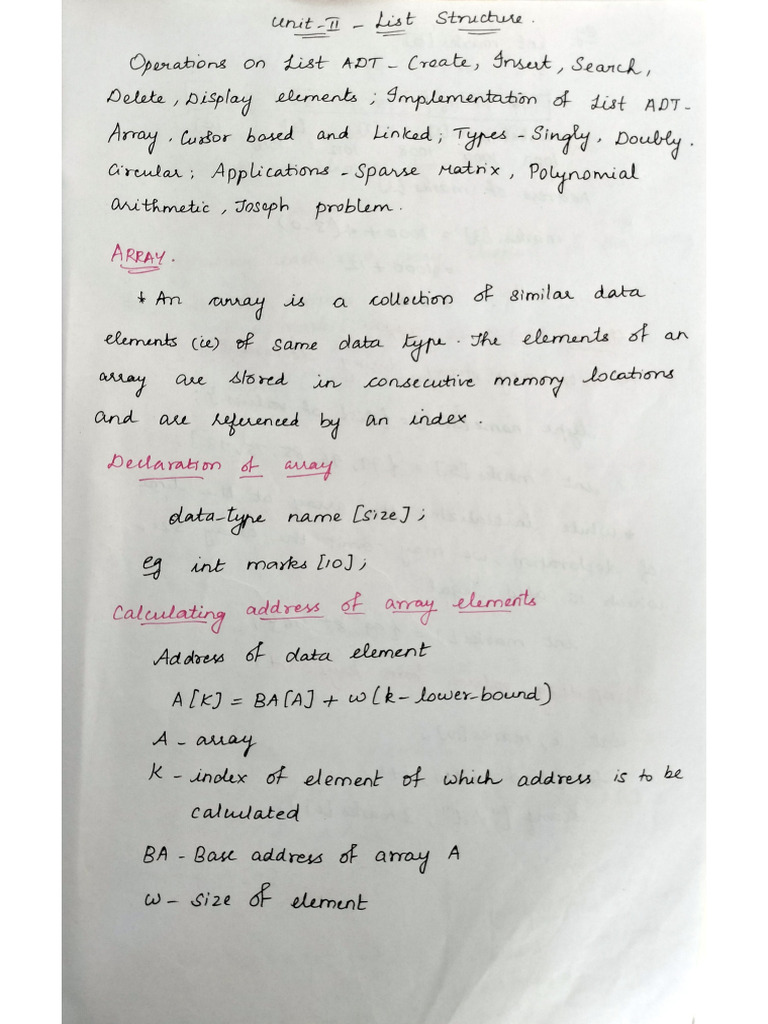 Unit-II - List Structure.
Operations on List ADT - Create, Insert, Search,
Delete, Display elements; Implementation of List ADT-
Array, Cursor based and Linked; Types - Singly, Doubly.
Circular; Applications - Sparse Matrix, Polynomial
Arithmetic, Joseph problem.
ARRAY.
* An array is a collection of similar data
elements (ie) of same data type. The elements of an
array are stored in consecutive memory locations
and are referenced by an index.
Declaration of array
data-type name [size];
eg int marks [10];
Calculating address of array elements
Address of data element
A[K] = BA[A] + w(k - lower-bound)
A - array
K - index of element of which address is to be
calculated
BA - Base address of array A
w - size of element